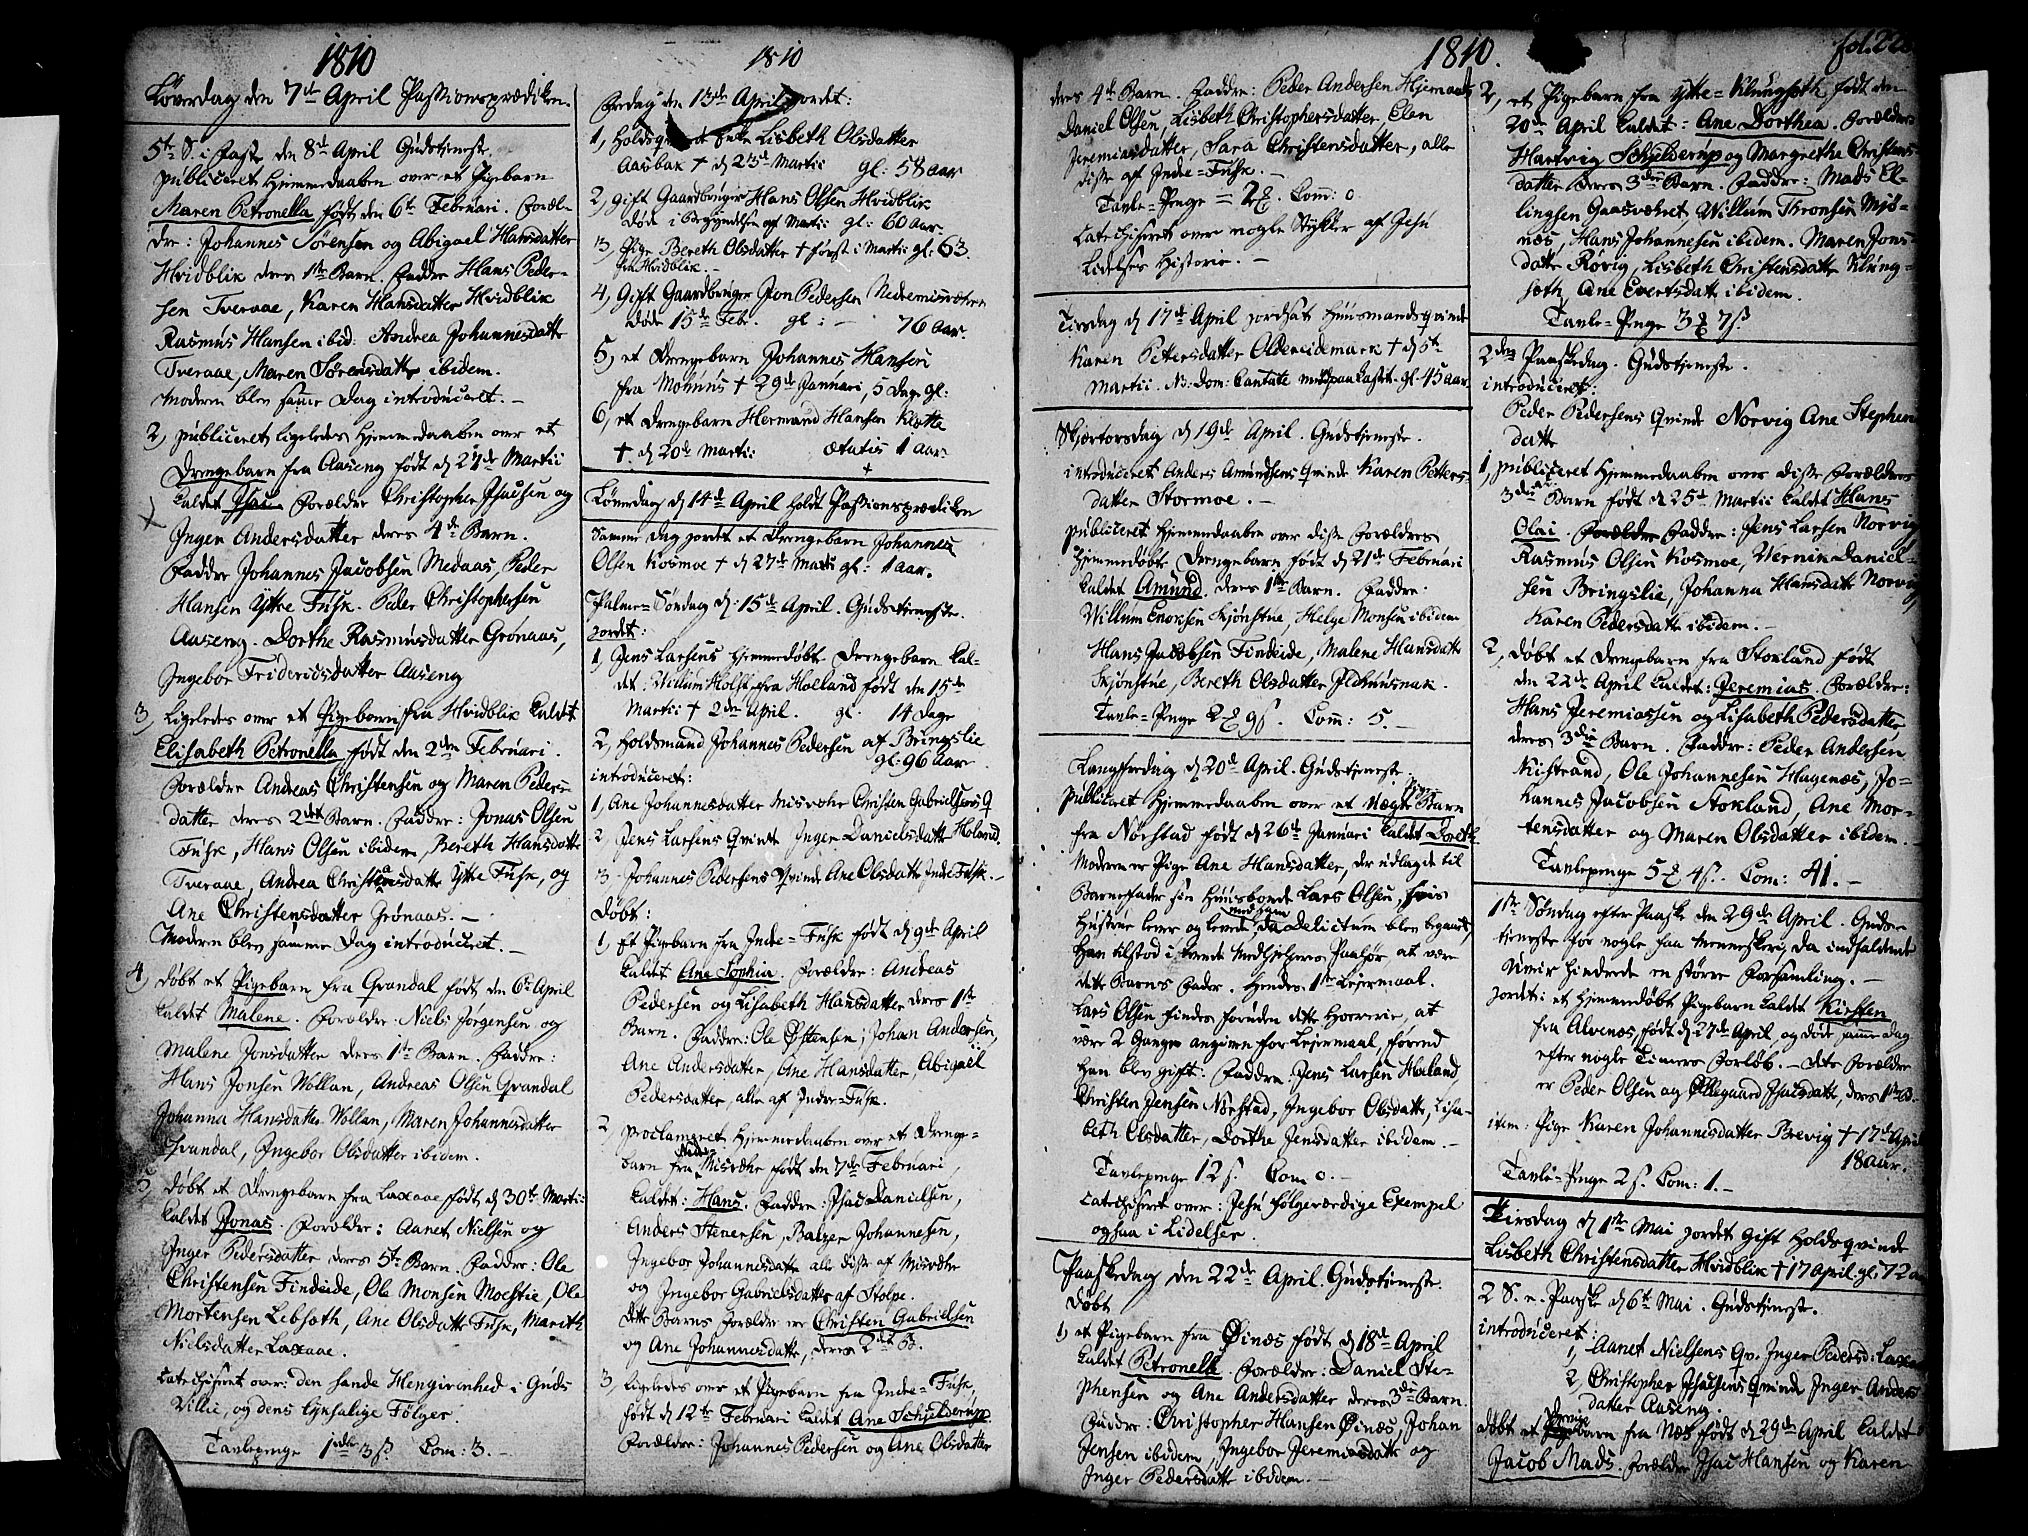 1810
Løverdag den 7de April Passionsprædiken.
5te S. i Faste den 8de April Gudstjeneste.
publiceret Hjemmedaaben over et Pigebarn
Maren Petronella født den 6te Februari. Foræl-
dre: Johannes Sørensen og Abigael Hansdatter
Hvidblik deres 1ste Barn. Faddre Hans Peder-
sen Tveraae, Karen Hansdatter Hvidblik
Rasmus Hansen ibid: Andrea Johannesdatter
Tveraae, Maren Sørensdatter ibidem.
Moderen blev samme Dag introduceret. –
2, publiceret ligeledes Hjemmedaaben over et
Drengebarn fra Aaseng født d 27de Martii
kaldet Isac Forældre Christopher Isacsen og
Inger Andersdatter deres 4de Barn.
Faddre Johannes Jacobsen Medaas, Peder
Hansen Ytte Fusk. Peder Christophersen
Aaseng. Dorthe Rasmusdatter Grønaas,
Ingebor Fridericsdatter Aaseng
3, Ligeledes over et Pigebarn fra Hvidblik kaldet
Elisabeth Petronella født den 2den Februari.
Forældre Andreas Christensen og Maren Peders-
datter deres 2det Barn. Faddre: Jonas Olsen
Fusk, Hans Olsen ibidem, Bereth Hansdatter
Tveraae, Andrea Christensdatter Ytte Fusk, og
Ane Christensdatter Grønaas. –
Moderen blev samme Dag introduceret. –
4, døbt et Pigebarn fra Qvandal født den 6te April
kaldet Malene. Forældre: Niels Jørgensen og
Malene Jonsdatter deres 1ste Barn. Faddre:
Hans Jonsen Vollan, Andreas Olsen Qvandal
Johanna Hansdatter Vollan, Maren Johannesdatter
Qvandal, Ingebor Olsdatter ibidem.
5, døbt et Drengebarn fra Laxaae født d 30te Martii
kaldet Jonas. Forældre: Aanet Nielsen og
Inger Pedersdatter deres 5te Barn. Faddre: Ole
Christensen Findeide, Ole Monsen Moestie, Ole
Mortensen Lebsøth, Ane Olsdatter Fusk, Mareth
Nielsdatter Laxaae.
Catechiseret over: den sande Hengivenhed i Guds
Villie, og dens lyksalige Følger.
Tavlepenge 1 rdlr 3 s. Com: 3. –
1810
Fredag den 13de April jordet:
1, Holdsqvinde Enke Lisbeth Olsdatter
Aasbak † d 23de Martii gl: 58 aar
2, gift Gaardbruger Hans Olsen Hvidblik
døde i Begyndelsen af Martii gl: 60 aar.
3, Pige Bereth Olsdatter † først i Martii gl: 63.
fra Hvidblik. –
4, gift Gaardbruger Jon Pedersen Nedremisvær
døde 15de Feb. gl: – 76 aar.
5, et Drengebarn Johannes Hansen
fra Mohuus † 29de Januari, 5 Dage gl:
6, et Drengebarn Hermund Hansen Kløtte
† d 20de Martii ætatis 1 aar
Løverdag d 14de April holdt Passionsprædiken
Samme Dag jordet et Drengebarn Johannes
Olsen Kosmoe † d 27de Martii gl: 1 aar.
Palme-Søndag d. 15de April. Gudstjeneste.
jordet:
1, Jens Larsens hjemmedøbt Drengebarn kal-
det Willum Holst fra Holland født den 15de
Martii † 2den April. gl. 14 Dage
2, Holdsmand Johannes Pedersen af Bringslie
gl: 96 Aar
introduceret:
1, Ane Johannesdatter Misvehr Christen Gabrielsens Q
2, Jens Larsens Qvinde Inger Danielsdatter Holand.
3, Johannes Pedersens Qvinde Ane Olsdatter Inde Fusk. –
døbt:
1, Et Pigebarn fra Inde-Fusk født d 9de April
kaldet Ane Sophia. Forældre: Andreas
Pedersen og Lisabeth Hansdatter deres 1ste
Barn. Faddre: Ole Østensen, Johan Andersen,
Ane Andersdatter, Ane Hansdatter Abigael
Pedersdatter, alle af Indre-Fusk.
2, proclameret Hjemmedaaben over et Drenge-
barn fra Nedre Misvehr født den 7de Februari,
kaldet: Hans. Faddre: Isac Danielsen,
Anders Steversen, Balzer Johannesen,
Ingebor Johannesdatter alle disse af Misvehr
og Ingebor Gabrielsdatter af Stolpe.
dette Barns Forældre ere Christen Gabrielsen
og Ane Johannesdatter, deres 2det B.
3, ligeledes over et Pigebarn fra Inde-Fusk,
født d 12te Februari kaldet Ane Schjelderup.
Forældre: Johannes Pedersen og Ane Olsdatter
1810.
deres 4de Barn. Faddre: Peder Andersen Hjemaas
Daniel Olsen, Lisbeth Christophersdatter, Elen
Jeremiasdatter, Sara Christensdatter, alle
disse af Inde-Fusk. –
Tavle-Penge = 2 ℔. Com: 0
Catechiseret over nogle Stykker af Jesu
Lidelses Historie. –
Tirsdag d 17de April jordsat Huusmandsqvinde
Karen Pettersdatter Oldereidemark † d 5te
Martii. N. Dom: Cantate gl. 45 aar
Skjertorsdag d 19de April. Gudstjeneste.
introduceret Anders Amundsens Qvinde Karen Petters-
datter Stormoe. –
publiceret Hjemmedaaben over disse Forældres
hjemmedøbte Drengebarn født d 21de Februari
kaldet Amund. deres 1ste Barn. Faddre:
Willum Enoksen Skjønstue, Helge Monsen ibidem
Hans Jacobsen Findeide, Malene Hansdatter
Skjønstue, Bereth Olsdatter Ildhuusnak.
Tavle-Penge 2 ℔ 9 s. Com: 5. –
Langfredag d 20de April. Gudstjeneste.
publiceret Hjemmedaaben over et uægte Pige Barn
fra Nørstad født d 26de Januari kaldet Dorth.
Moderen er Pige Ane Hansdatter, der udlagde til
Barnefader sin Huusbonde Lars Olsen, hvis
Hustrue lever og levede med ham da delictum blev begaaet,
Han tilstod i mine Medhjelperes Paahør at være
dette Barns Fader. Hendes 1ste Lejermaal.
Lars Olsen findes foruden dette Horerie, at
være 2 Gange angiven for Lejermaal, førend
han blev gift. Faddre: Jens Larsen Holand,
Christen Jensen Nørstad, Ingebor Olsdatter, Lisa-
beth Elsdatter, Dorthe Jensdatter ibidem. –
Tavlepenge 12 s. Com 0. –
Catechiseret over: Jesu følgeværdige Exempel
ogsaa i Lidelser.
Paaskedag den 22de April. Gudstjeneste.
døbt
1, et Pigebarn fra Øinæs født d 18de April
kaldet Petronelle. Forældre: Daniel Ste-
phensen og Ane Andersdatter deres 3die Barn.
Faddre: Christopher Hansen Øinæs, Johan
Jensen ibidem, Ingebor Jeremiasdatter og
Inger Pedersdatter ibidem. –
fol. 22
2, et Pigebarn fra Ytte-Klungsøth født den
20de April kaldet: Ane Dorthea. Forældre:
Hartvig Schjelderup og Margrethe Christens-
datter deres 3die Barn. Faddre: Mads El-
lingsen Gaasværet, Willum Thronsen Mjø-
næs, Hans Johannesen ibidem. Maren Jons-
datter Røvig, Lisbeth Christensdatter Klung-
søth, Ane Evertsdatter ibidem.
Tavle-Penge 3 ℔ 7 s.
2den Paaskedag. Gudstjeneste.
introduceret:
Peder Pedersens Qvinde Norvig Ane Stephens-
datter
1, publiceret Hjemmedaaben over disse Forældres
3die Barn født d 25de Martii kaldet Hans
Olai Forældre Faddre: Jens Larsen Norvig
Rasmus Olsen Kosmoe, Vernin Daniel-
sen Bringslie, Johanna Hansdatter Norvig
Karen Pedersdatter ibidem. –
2, døbt et Drengebarn fra Stokland født
den 22de April kaldet: Jeremias. Forældre:
Hans Jeremiassen og Lisabeth Pedersdatter
deres 3die Barn. Faddre: Peder Andersen
Kistrand, Ole Johannesen Hagenæs, Jo-
hannes Jacobsen Stokland, Ane Mor-
tensdatter og Maren Olsdatter ibidem.
Tavlepenge 5 ℔ 4 s. Com: 41. –
1ste Søndag efter Paaske den 29de April. Guds-
tjeneste for nogle faa Mennesker, da indfaldende
Uveir hindrede en større Forsamling. –
jordet: et hjemmedøbt Pigebarn kaldet Kirsten
fra Alvenæs, født d 27de April, og døde samme dag
efter nogle Timers Forløb. – dets Forældre
er Peder Olsen og Ollegaard Isacsdatter, deres 1ste B.
item: Pige Karen Johannesdatter Brevig † 17de April
18 aar.
Tavle-Penge 2 s. Com: 1. –
Tirsdag d 1ste Mai jordet gift Holdsqvinde
Lisbeth Christensdatter Hvidblik † 17 April. gl. 72 a
2 S. e. Paaske d 6te Mai. Gudstjeneste.
introduceret:
1, Aanet Nielsens Qv. Inger Pedersd: Laxaae
2, Christopher Isacsens Qvinde Inger Anders
datter Aaseng.
døbt et Drenge barn fra Næs født d 29de April kaldet
Jacob Mads. Forældre Isac Hansen og Karen